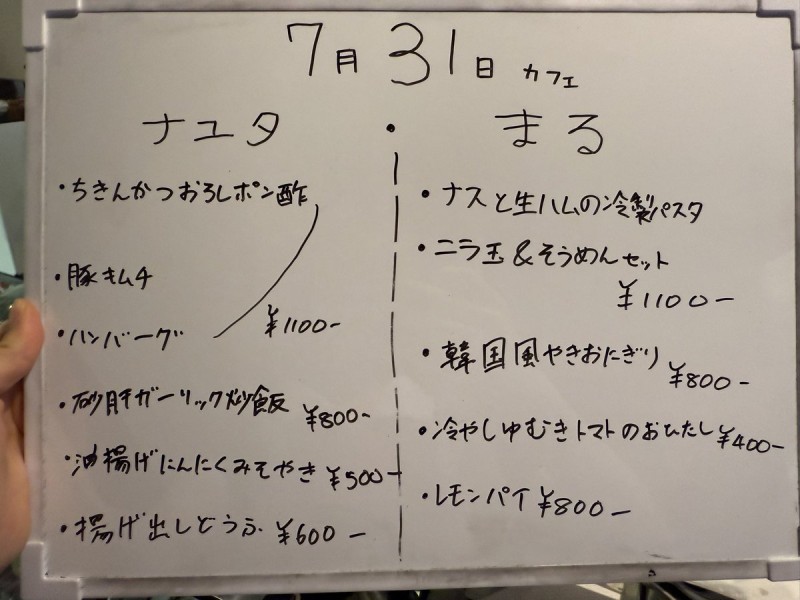 7月31日 カフェ
ナユタ
・ちきんかつおろしポン酢
・豚キムチ
・ハンバーグ
¥1100-
・砂肝ガーリック炒飯 ¥800-
・油揚げにんにくみそやき ¥500-
・揚げ出しどうふ ¥600-
まる
・ナスと生ハムの冷製パスタ
・ニラ玉&そうめんセット
¥1100-
・韓国風やきおにぎり ¥800-
・冷やしゆむきトマトのおひたし ¥400-
・レモンパイ ¥800-